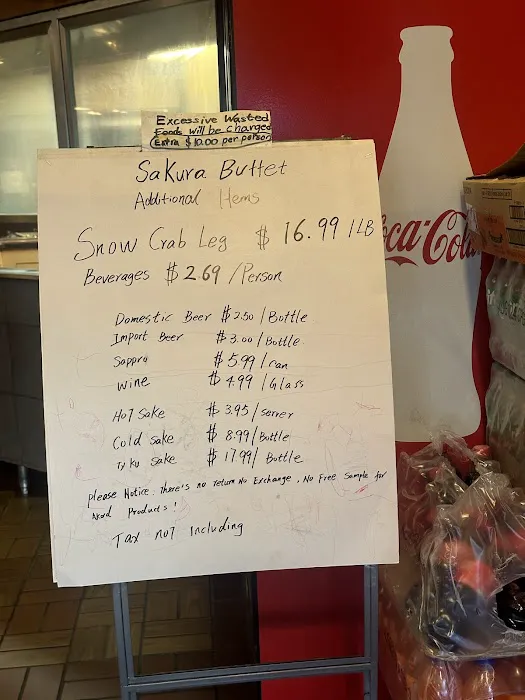 Excessive Wasted
Foods will be charged
Extra $10.00 per person
Sakura Buffet
Additional Items
Snow Crab Leg $ 16.99 / LB
Beverages $ 2.69 / Person
Domestic Beer $ 2.50 / Bottle
Import Beer $ 3.00 / Bottle
Sapporo $ 5.99 / can
Wine $ 4.99 / Glass
HoT Sake $ 3.95 / Server
Cold Sake $ 8.99 / Bottle
Ty Ku Sake $ 17.99 / Bottle
please Notice: There's no return No Exchange, No Free Sample for
Products!
Tax noT Including
Coca-Cola